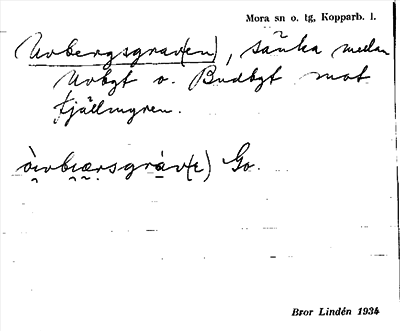 Mora sn o. tg, Kopparb. l.
Uvbergsgrav(en), sänka mellan
Uvbgt o. Budbgt mot
Fjällmyren.
òɩvbɩærsgràv(ɛ) Go.
Bror Lindén 1934